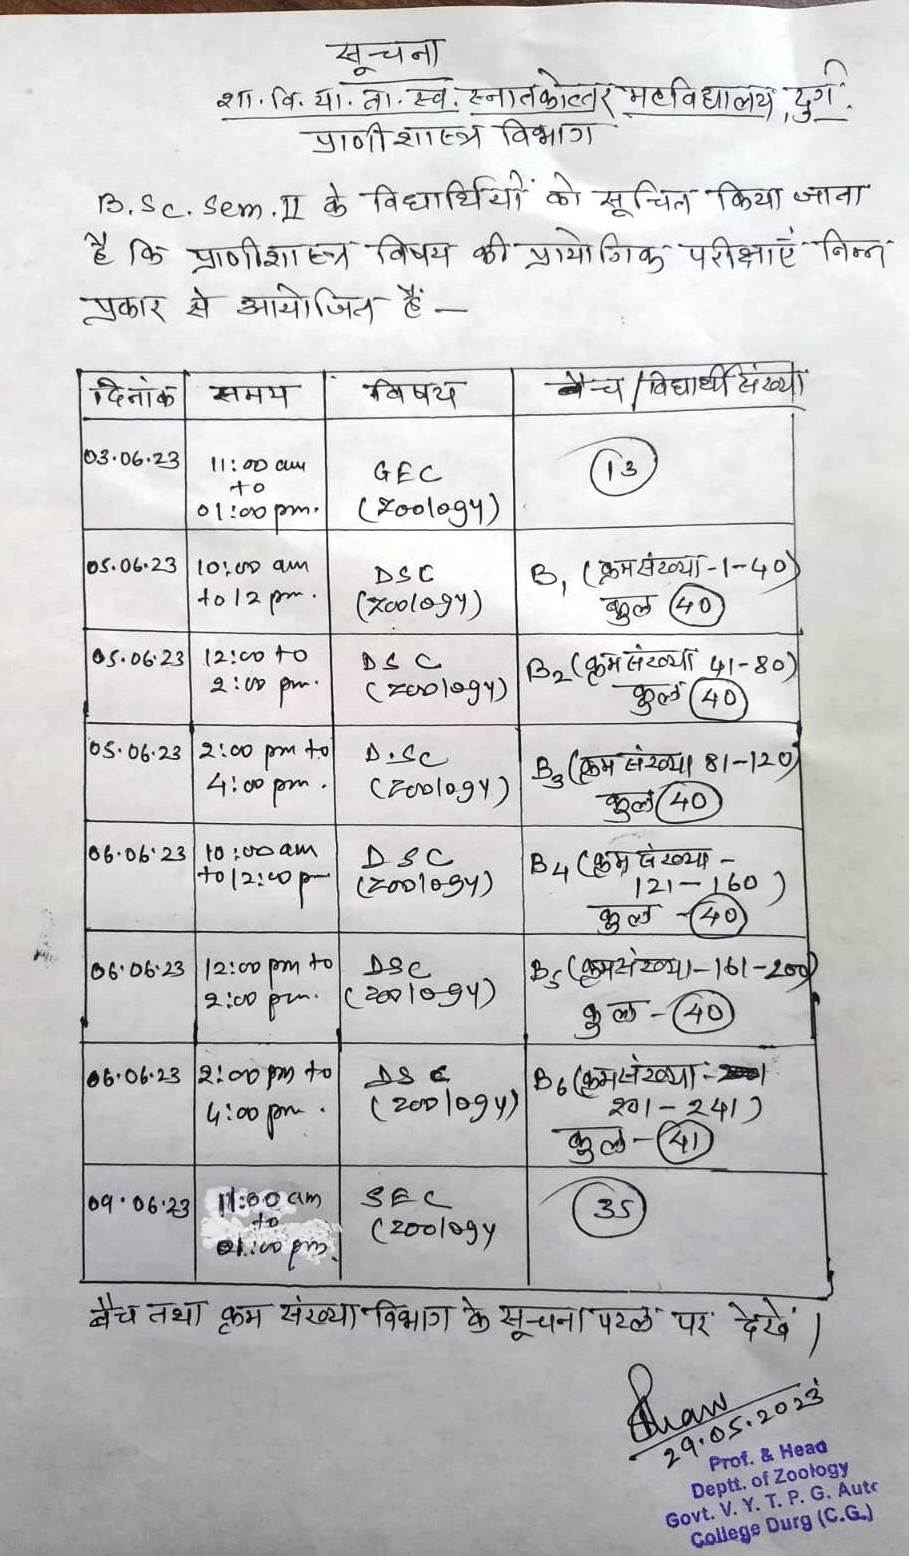 सूचना
शा. वि. या. ता. स्व. स्नातकोत्तर महाविद्यालय, दुर्ग.
प्राणीशास्त्र विभाग
B.Sc. Sem. II के विद्यार्थियों को सूचित किया जाता
है कि प्राणीशास्त्र विषय की प्रायोगिक परीक्षाएं निम्न
प्रकार से आयोजित हैं —
दिनांक समय विषय बैच / विद्यार्थी संख्या
03.06.23 11:00 am to 01:00 pm. GEC (Zoology) 13
05.06.23 10:00 am to 12 pm. DSC (Zoology) B1 (क्रम संख्या - 1-40) कुल 40
05.06.23 12:00 to 2:00 pm. DSC (Zoology) B2 (क्रम संख्या 41-80) कुल 40
05.06.23 2:00 pm to 4:00 pm. D.SC (Zoology) B3 (क्रम संख्या 81-120) कुल 40
06.06.23 10:00 am to 12:00 pm DSC (Zoology) B4 (क्रम संख्या - 121-160) कुल - 40
06.06.23 12:00 pm to 2:00 pm. DSC (Zoology) B5 (क्रम संख्या - 161-200) कुल - 40
06.06.23 2:00 pm to 4:00 pm. DSC (Zoology) B6 (क्रम संख्या - 201-241) कुल - 41
09.06.23 11:00 am to 01:00 pm. SEC (Zoology 35
बैच तथा क्रम संख्या विभाग के सूचना पटल पर देखें।
29.05.2023
Prof. & Head
Deptt. of Zoology
Govt. V. Y. T. P. G. Auto
College Durg (C.G.)